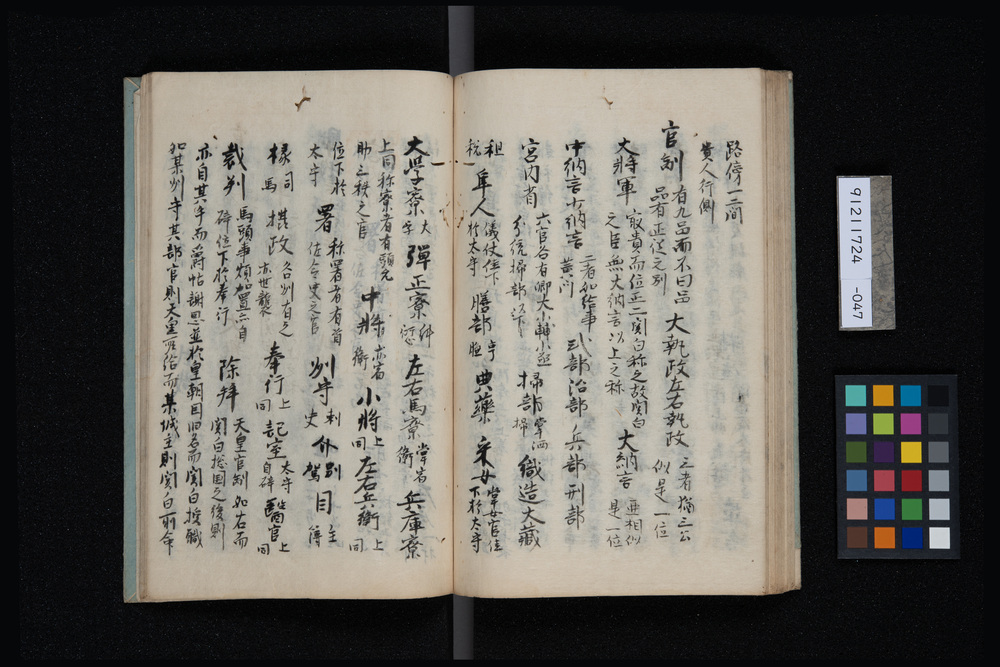 路傍一二間
貴人行側
官制 有九品而不曰品 品有正從之別 大執政左右執政 三者猶三公 似是一位
大將軍 最貴而位正二関白称之故関白 之臣無大納言以上之称 大納言 亜相似 是一位
中納言少納言 二者如給事 黄門 式部治部 兵部刑部
宮内省 六官各有卿大小輔小丞 分統掃部以下 掃部 掌洒 掃 織造大藏
租 税 隼人 儀仗位下 於太守 膳部 亨 典藥 采女 掌女官位 下於太守
大學寮 大 学 彈正寮 糾 左右馬寮 掌宿 衛 兵庫寮
上同称寮者有頭允
助三秩之官 中將 亦宿 衛 小將 上 同 左右兵衛 上 同
位下於
太守 署 称署者有首 佐令史之官 州守 刺 史 介 別 駕 目 主 簿
掾 司 馬 摂政 各州有之 亦世襲 奉行 上 同 記室 太守 自辟 醫官 上 同
裁判 馬頭事煩加置亦自 辟位下於奉行 除拜 天皇官制如右而 関白摠国之後則
亦自其守而爵帖謝恩並於皇朝因旧名而関白摠職
如某州守某部官則天皇所給而某城主則関白所命
91211724
-047